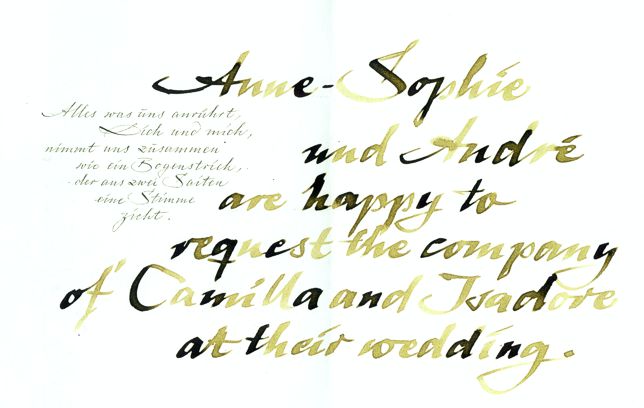 Alles was uns anrührt,
Dich und mich,
nimmt uns zusammen
wie ein Bogenstrich,
der aus zwei Saiten
eine Stimme
zieht.
Anne-Sophie
und André
are happy to
request the company
of Camilla and Isadore
at their wedding.